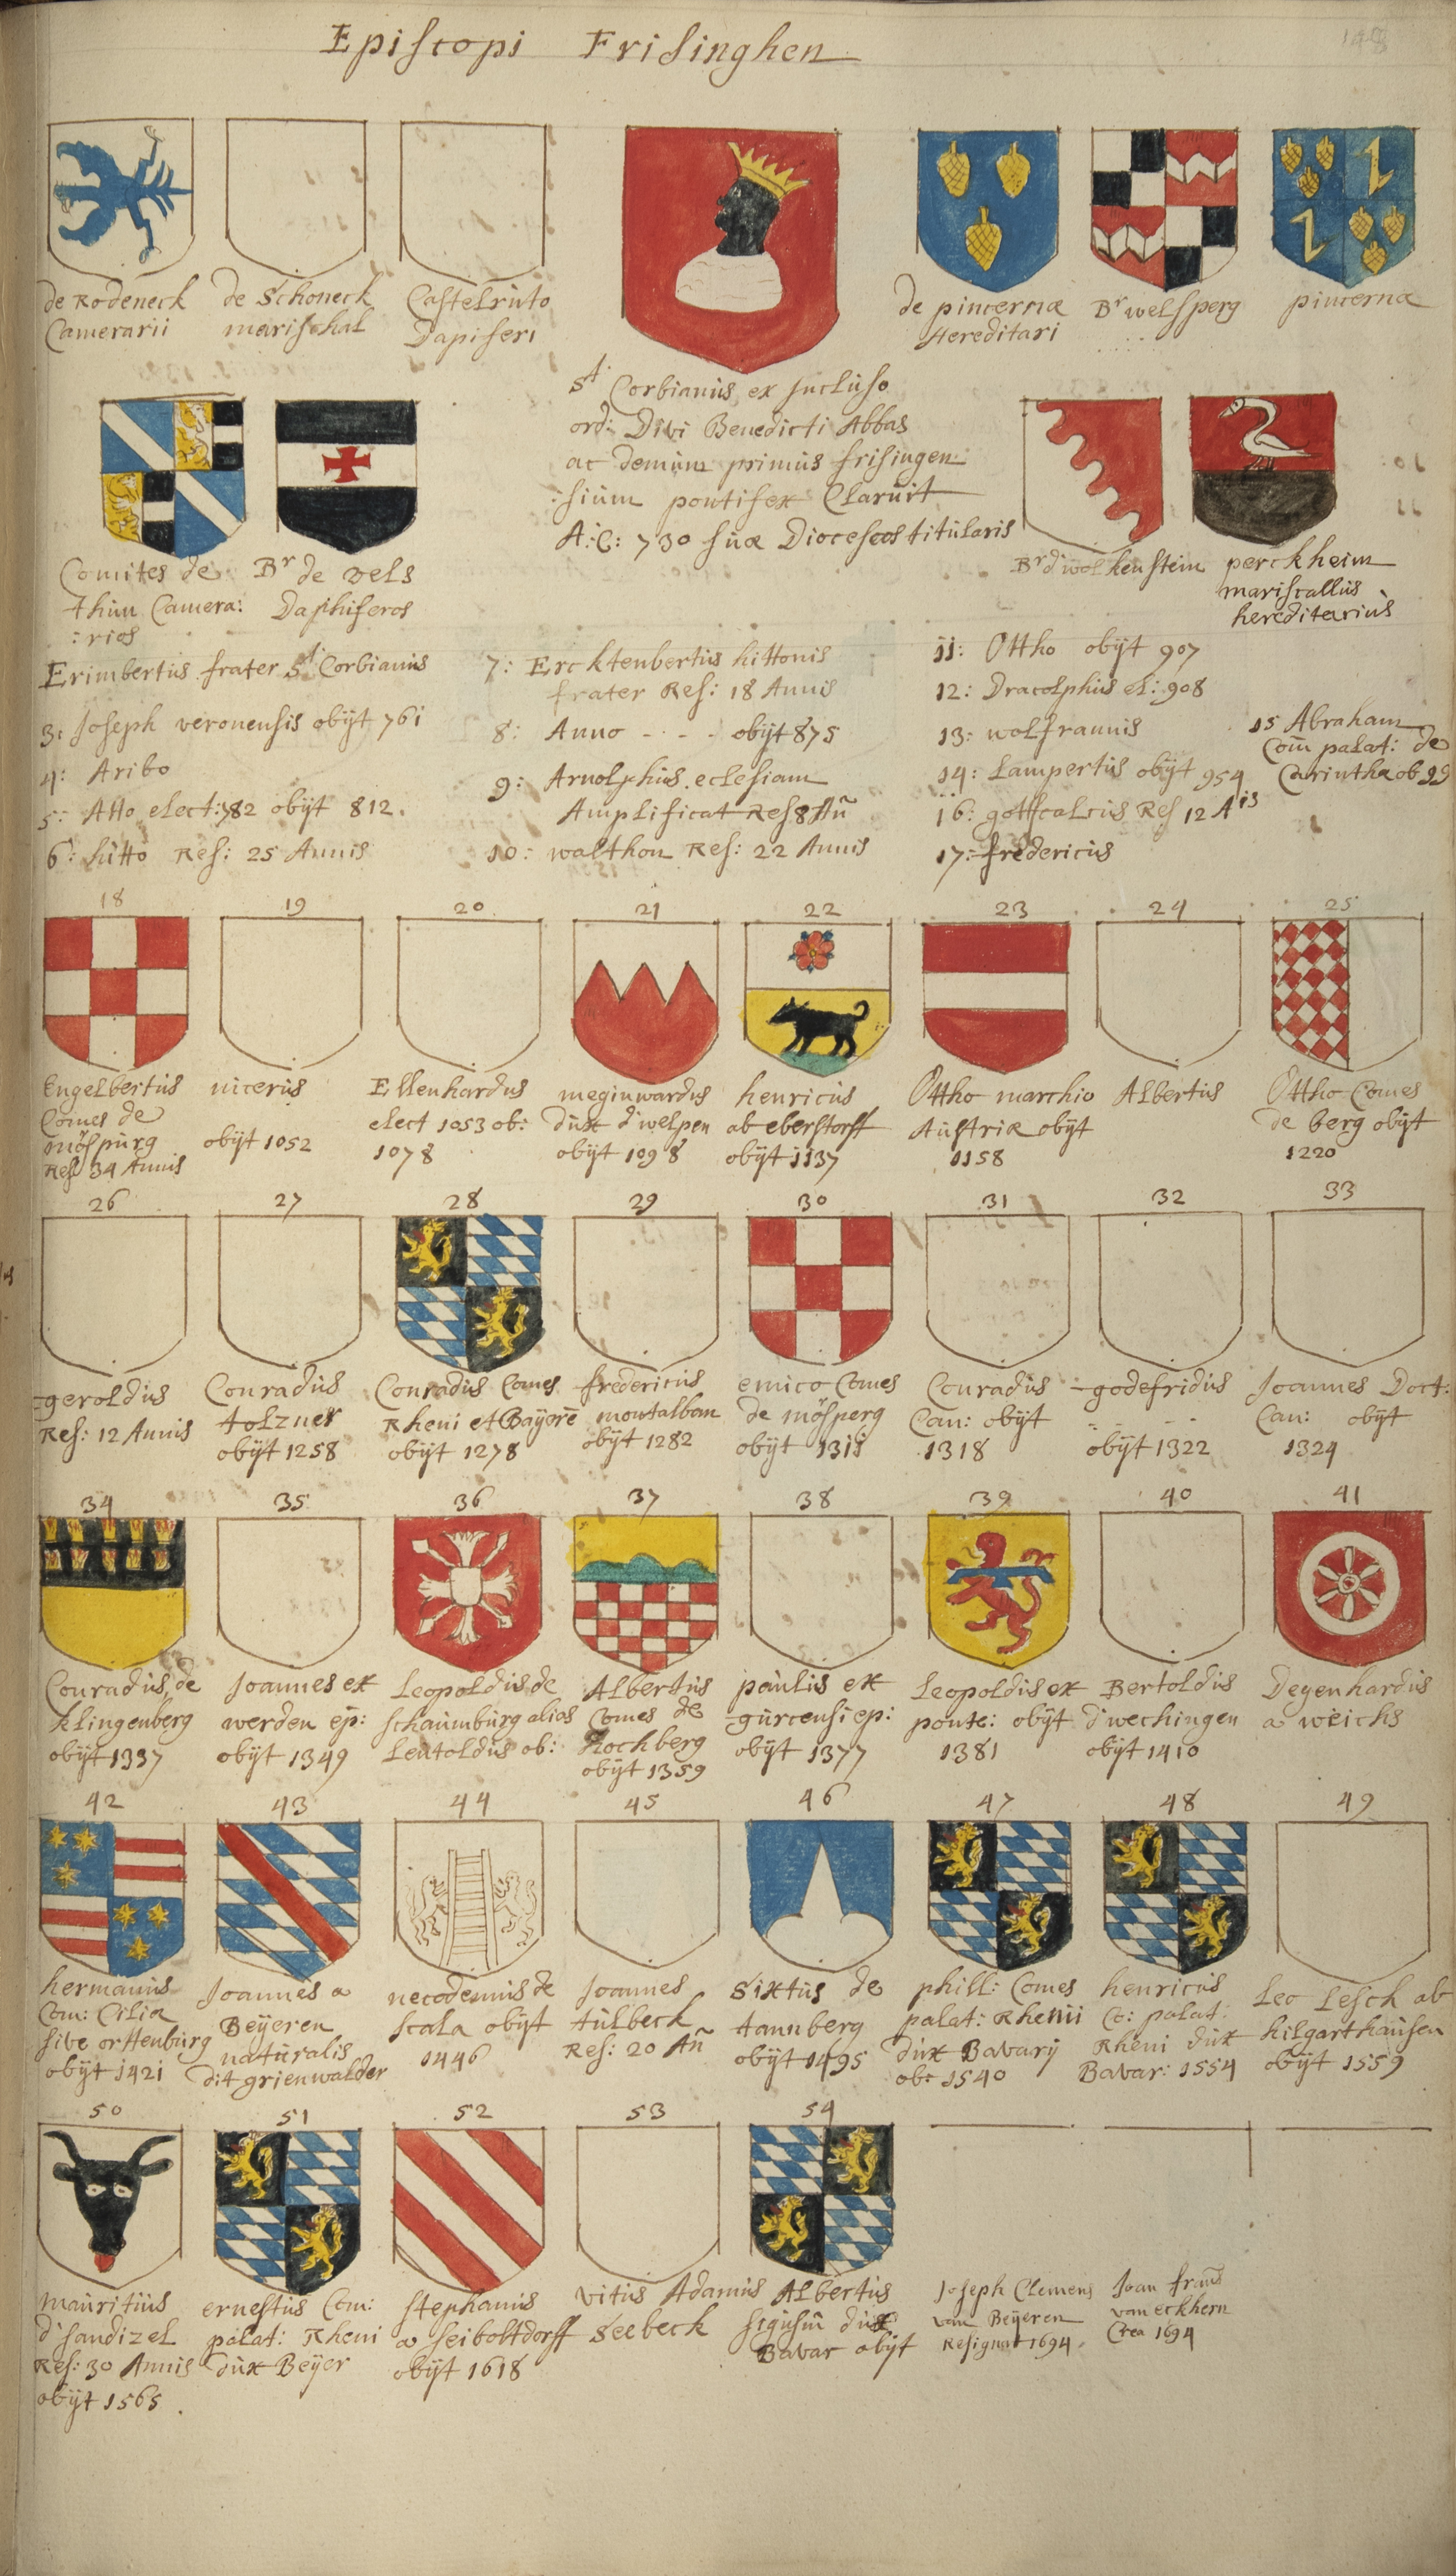 Episcopi Frisinghen
148
de Rodeneck
Camerarii
de Schoneck
marischal
Castelruto
Dapiferi
de pincernæ
Hereditari
Br welsperg
pincernæ
St. Corbianus ex Jncluso
ord: Divi Benedicti Abbas
ac demum primus frisingen
:sium pontifex Claruit
A:C: 730 suæ Dioceseos titularis
Comites de
thun Camera:
:rios
Br de vels
Daphiferos
Br d wolkenstein
perckheim
mariscallus
hereditarius
Erimbertus frater St Corbianis
3: Joseph veronensis obijt 761
4: Aribo
5: Atto elect: 782 obijt 812.
6: hitto Res: 25 Annis
7: Ercktenbertus hittonis
frater Res: 18 Annis
8: Anno - - - obijt 875
9: Arnolphus eclesiam
Amplificat Res 8 Añ
10: walthon Res: 22 Annis
11: Ottho obijt 907
12: Dracolphus el: 908
13: wolframis
14: Lampertus obijt 954
16: gottscalcus Res 12 Ais
17: fredericus
15 Abraham
Com palat: de
Carinthia ob 99
18
Engelbertus
Comes de
mösburg
Res 34 Annis
19
nicerus
obijt 1052
20
Ellenhardus
elect 1053 ob:
1078
21
meginwardus
dux d welpen
obijt 1098
22
henricus
ab eberstorff
obijt 1137
23
Ottho marchio
Austriæ obijt
1158
24
Albertus
25
Ottho Comes
de berg obijt
1220
26
geroldus
Res: 12 Annis
27
Conradus
tolzner
obijt 1258
28
Conradus Comes
Rheni et Bayerē
obijt 1278
29
fredericus
montalban
obijt 1282
30
emico Comes
de mösperg
obijt 1311
31
Conradus
Can: obijt
1318
32
godefridus
- - -
obijt 1322
33
Joannes Doct:
Can: obijt
1324
34
Conradus de
klingenberg
obijt 1337
35
Joannes ex
werden ep:
obijt 1349
36
Leopoldus de
schaumburg alios
Leutoldus ob:
37
Albertus
Comes de
Hochberg
obijt 1359
38
paulus ex
gurcensi ep:
obijt 1377
39
Leopoldus ex
ponte: obijt
1381
40
Bertoldus
d wechingen
obijt 1410
41
Degenhardus
a weichs
42
hermanus
Com: Cilia
sive orttenburg
obijt 1421
43
Joannes a
Beyeren
naturalis
dit grienwalder
44
necodemus de
scala obijt
1446
45
Joannes
tulbeck
Res: 20 Añ
46
Sixtus de
tannberg
obijt 1495
47
phill: Comes
palat: Rhenii
dux Bavarij
ob: 1540
48
henricus
Co: palat:
Rheni dux
Bavar: 1554
49
Leo Lesch ab
hilgarthausen
obijt 1559
50
mauritius
d' sandizel
Res: 30 Annis
obijt 1565.
51
ernestus Com:
palat: Rheni
dux Beyer
52
stephanus
a seiboltdorff
obijt 1618
53
vitus Adamus
Seebeck
54
Albertus
sigism dux
Bavar obijt
Joseph Clemens
van Beyeren
Resignat 1694.
Joan frans
van eckhern
Crea 1694